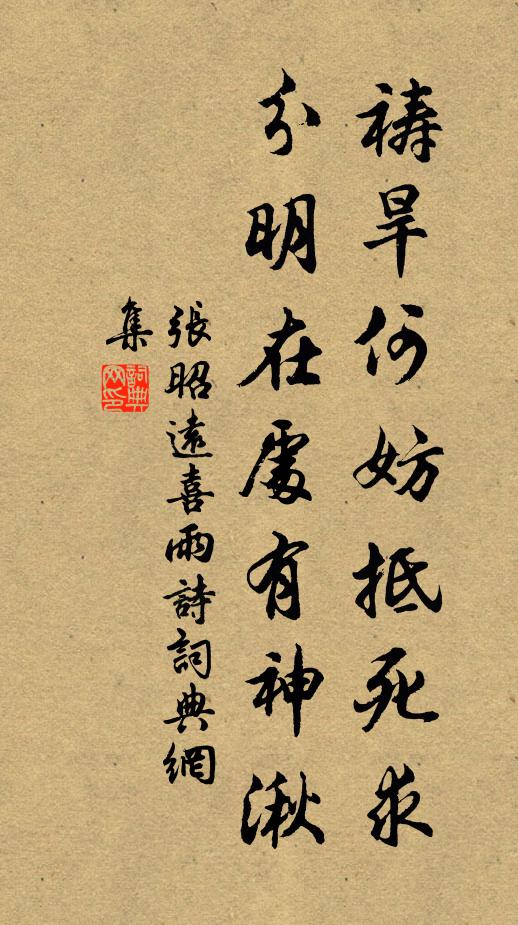 禱旱何妨抵死求
分明在處有神湫
張昭遠喜雨詩詞典網
集
詞典
网印